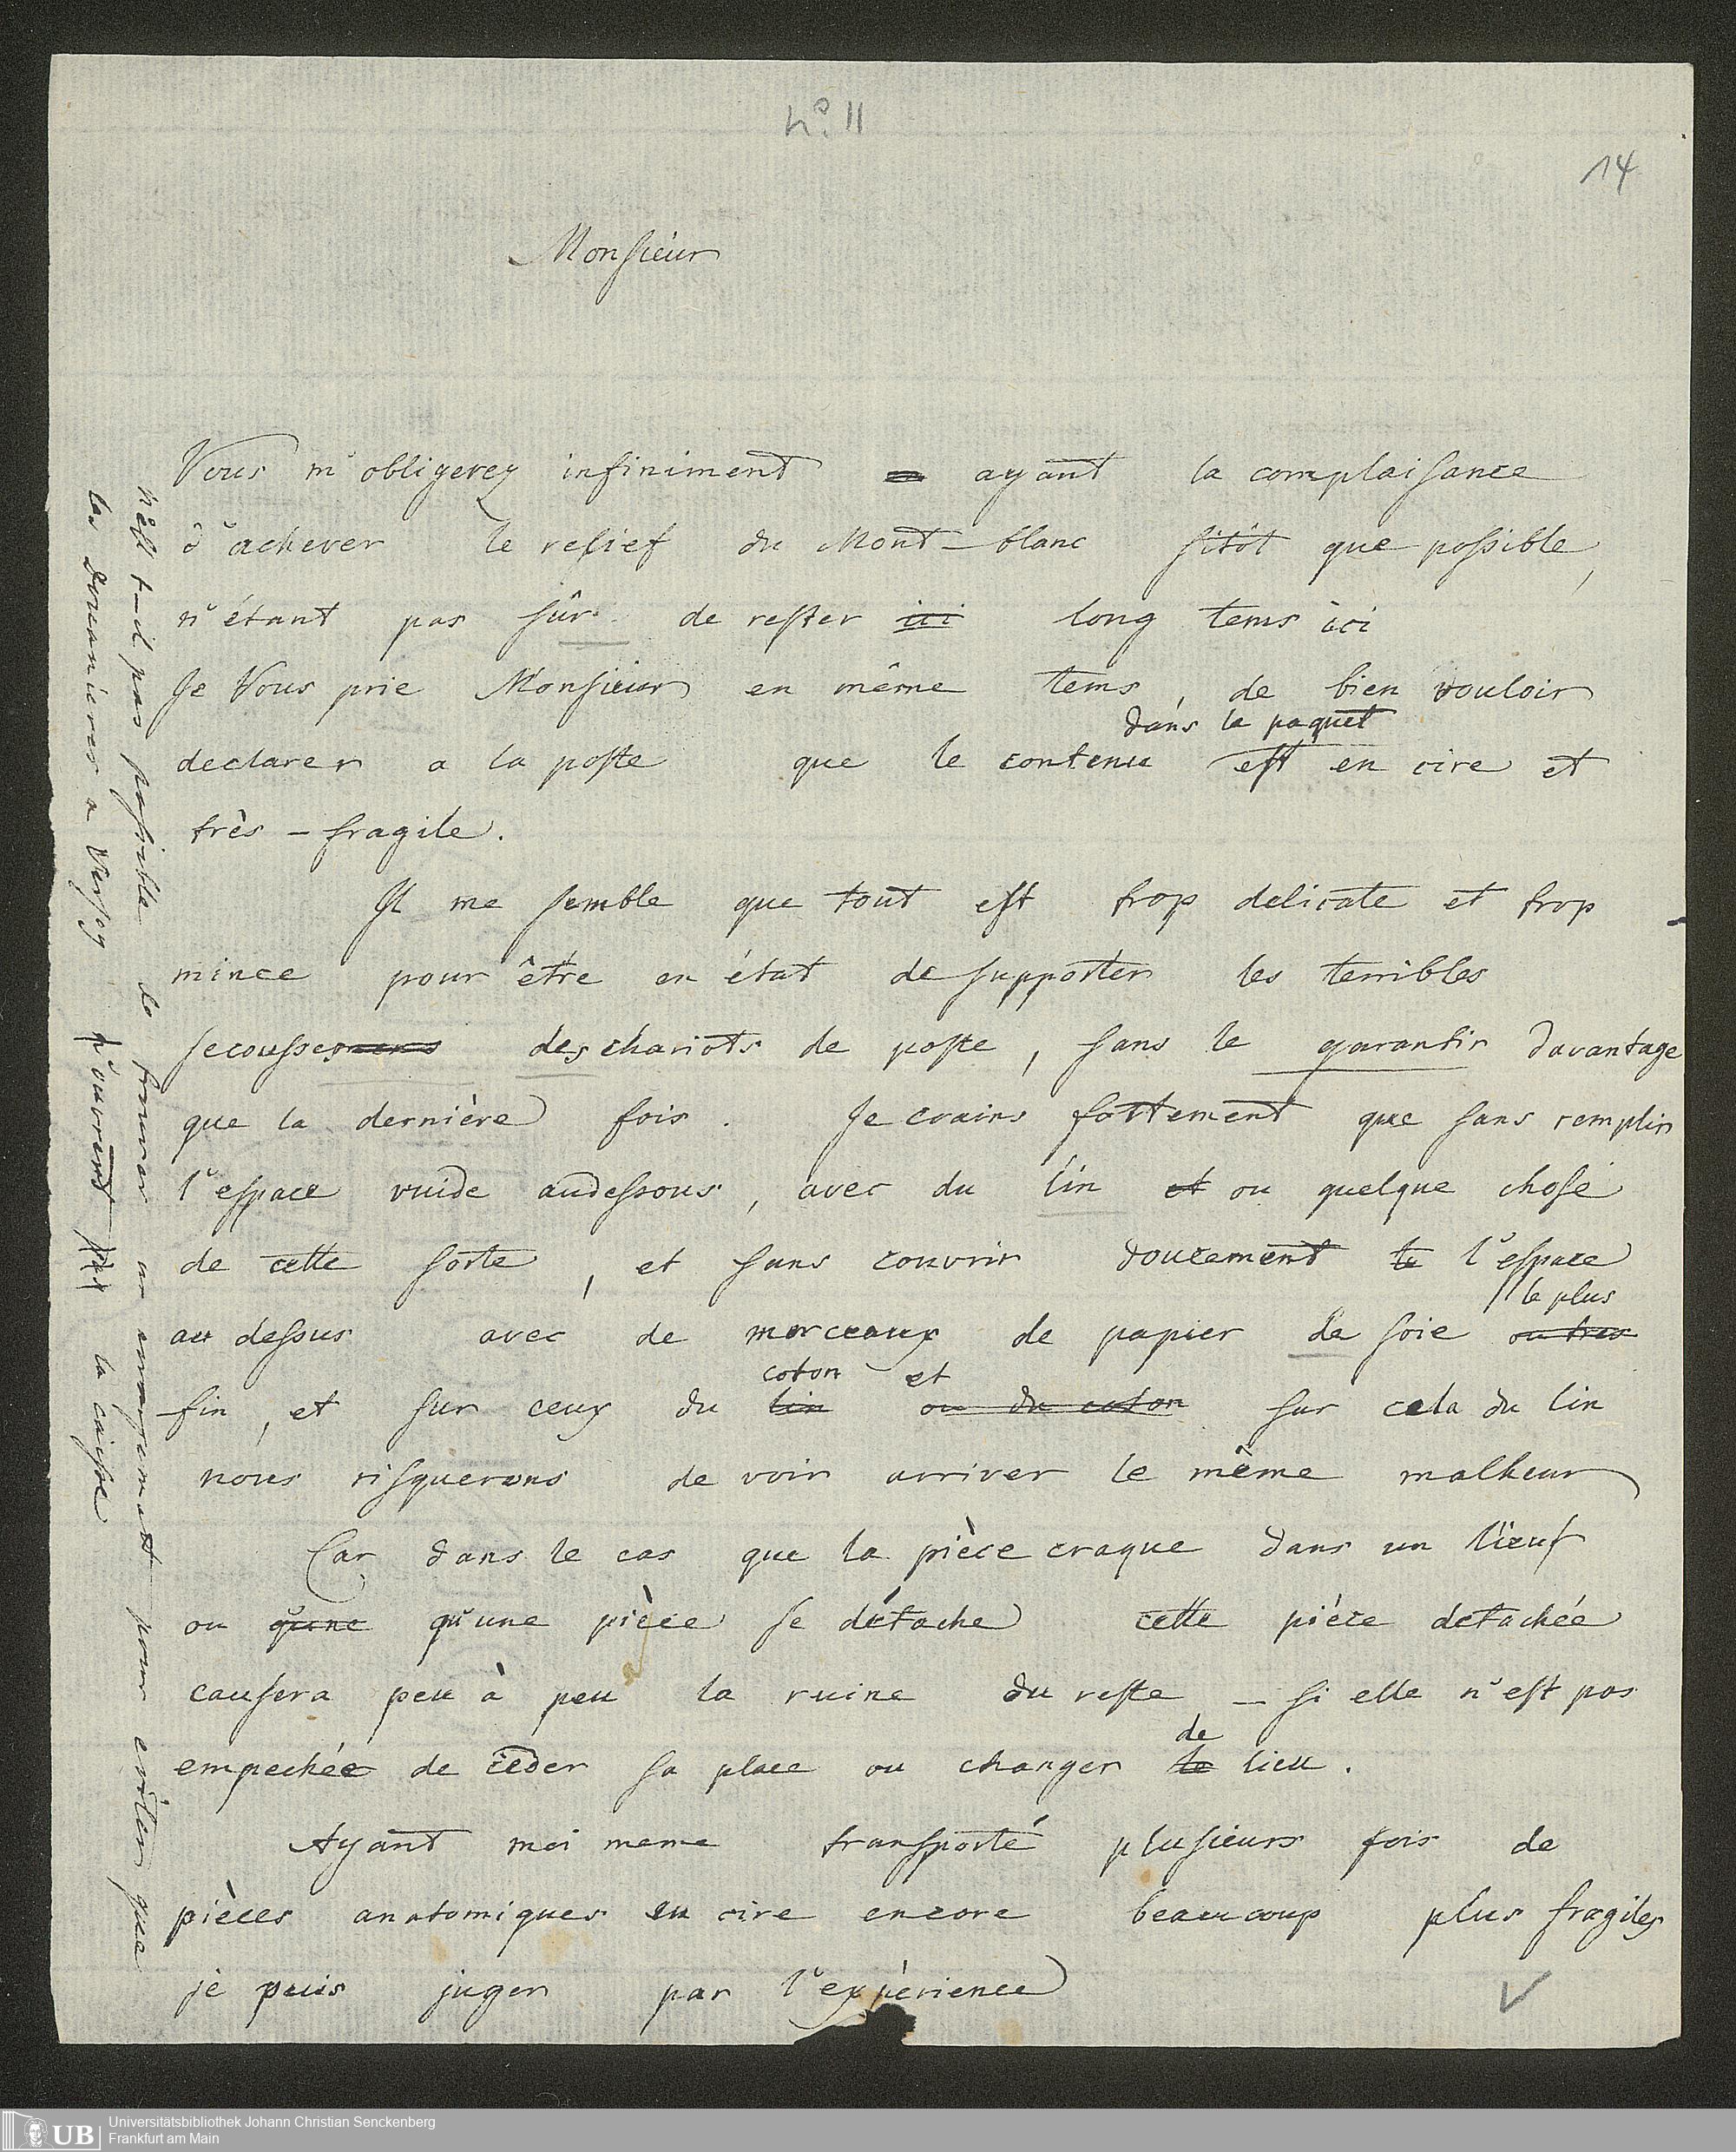 No. 11
14
Monsieur
Vous m'obligerez infiniment en ayant la complaisance
d'achever le relief du Mont-blanc sitôt que possible,
n'étant pas sûr de rester ici long tems ici
Je Vous prie Monsieur en même tems, de bien vouloir
dans le paquet
declarer a la poste que le contenu est en cire et
très-fragile.
Il me semble que tout est trop delicate et trop
mince pour être en état de supporter les terribles
secoussemens des chariots de poste, sans le garantir davantage
que la dernière fois. Je crains fortement que sans remplir
l'espace vuide audessous, avec du lin et ou quelque chose
de cette sorte, et sans couvrir doucement le l'espace
le plus
au dessus avec de morceaux de papier de soie ou tres
coton et
fin, et sur ceux du lin ou du coton sur cela du lin
nous risquerons de voir arriver le même malheur
Car dans le cas que la pièce craque dans un lieuf
ou qune qu'une pièce se détache cette pièce detachée
causera peu à peu la ruine du reste — si elle n'est pas
de
empechée de ceder sa place ou changer le lieu.
Ayant moi meme transporté plusieurs fois de
pièces anatomiques en cire encore beaucoup plus fragiles
je puis juger par l'expèrience
n'est t-il pas possible de trouver un arrangement pour eviter que
les douanieres a Versoy n'ouvrent pas la caisse
Universitätsbibliothek Johann Christian Senckenberg
Frankfurt am Main
UB